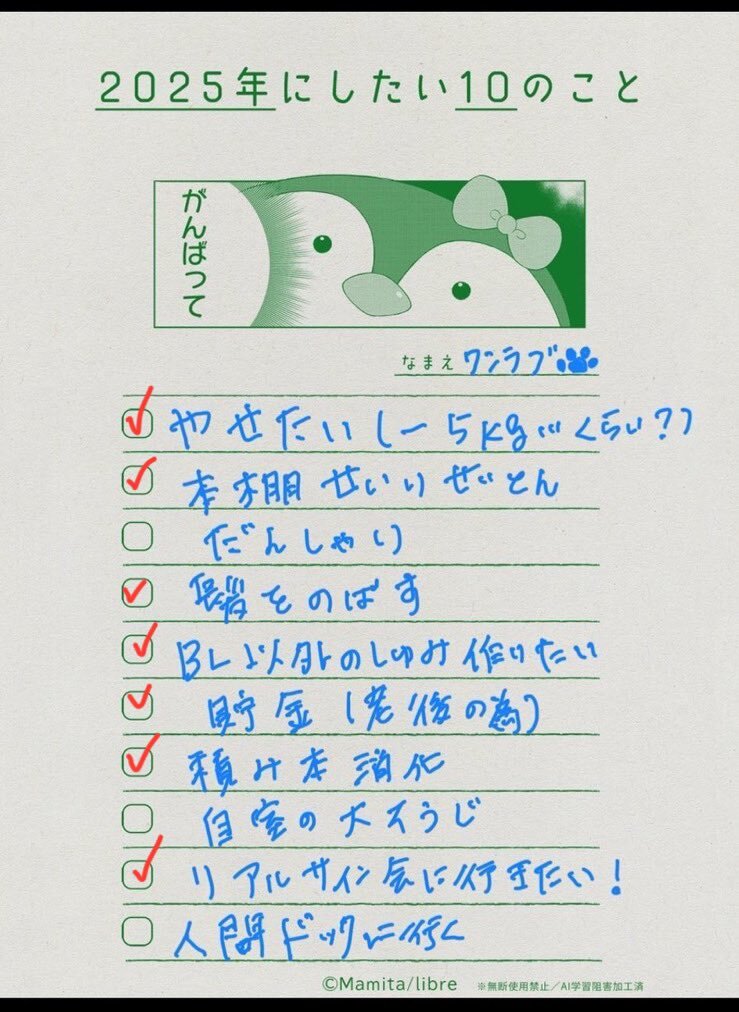 2025年にしたい10のこと
がんばって
なまえ ワンラブ
やせたい(-5kgくらい?)
本棚せいりせいとん
だんしゃり
髪をのばす
BL以外のしゅみ作りたい
貯金(老後の為)
積み本消化
自室の大そうじ
リアルサイン会に行きたい!
人間ドックに行く
©Mamita/libre ※無断使用禁止/AI学習阻害加工済